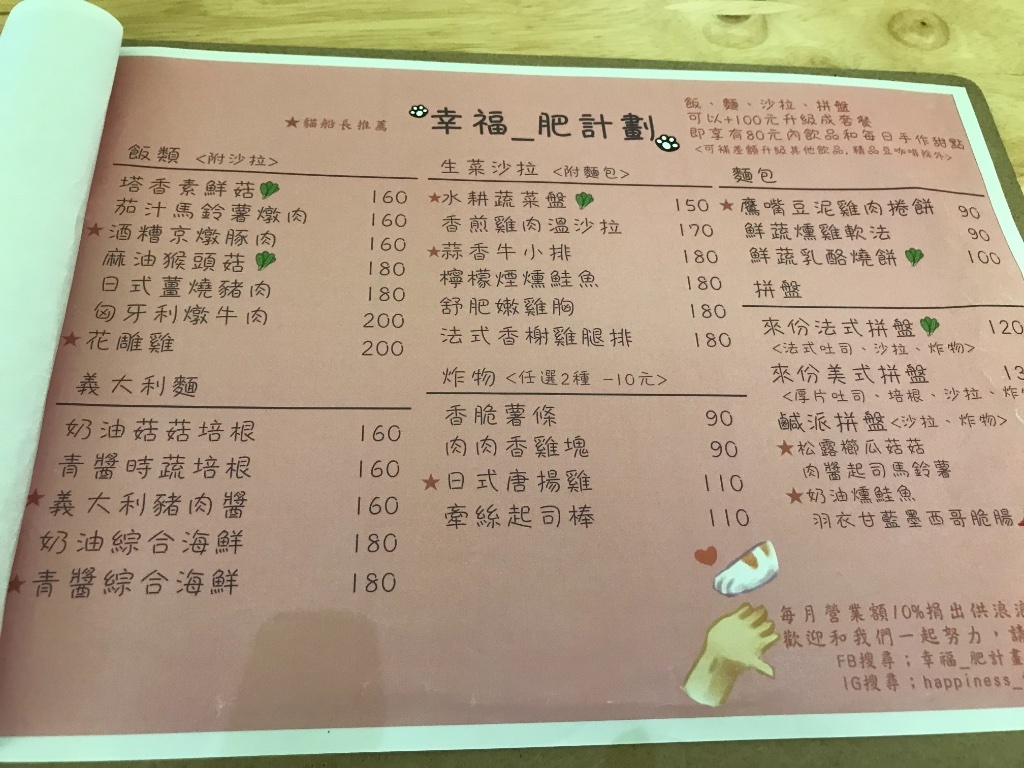 ★貓船長推薦
幸福_肥計劃
飯、麵、沙拉、拼盤
可以+100元升級成套餐
即享有80元內飲品和每日手作甜點
<可補差額升級其他飲品,精品豆咖啡除外>
飯類 <附沙拉>
塔香素鮮菇 160
茄汁馬鈴薯燉肉 160
★酒糟京燉豚肉 160
麻油猴頭菇 180
日式薑燒豬肉 180
匈牙利燉牛肉 200
★花雕雞 200
義大利麵
奶油菇菇培根 160
青醬時蔬培根 160
★義大利豬肉醬 160
奶油綜合海鮮 180
★青醬綜合海鮮 180
生菜沙拉 <附麵包>
★水耕蔬菜盤 150
香煎雞肉溫沙拉 170
★蒜香牛小排 180
檸檬煙燻鮭魚 180
舒肥嫩雞胸 180
法式香榭雞腿排 180
炸物 <任選2種 -10元>
香脆薯條 90
肉肉香雞塊 90
★日式唐揚雞 110
牽絲起司棒 110
麵包
★鷹嘴豆泥雞肉捲餅 90
鮮蔬燻雞軟法 90
鮮蔬乳酪燒餅 100
拼盤
來份法式拼盤 120
<法式吐司、沙拉、炸物>
來份美式拼盤 13
<厚片吐司、培根、沙拉、炸
鹹派拼盤<沙拉、炸物>
★松露櫛瓜菇菇
肉醬起司馬鈴薯
★奶油燻鮭魚
羽衣甘藍墨西哥脆腸
每月營業額10%捐出供浪浪
歡迎和我們一起努力，請
FB搜尋；幸福_肥計畫
IG搜尋；happiness_